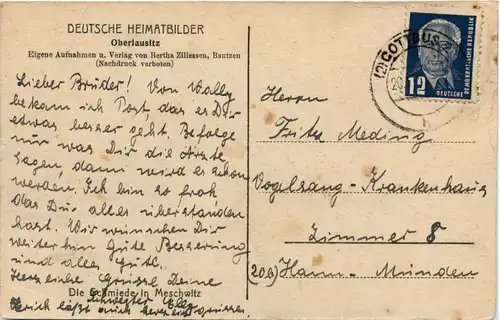 DEUTSCHE HEIMATBILDER
Oberlausitz
Eigene Aufnahmen u. Verlag von Bertha Zillessen, Bautzen
(Nachdruck verboten)
Lieber Bruder! Von Wally
bekam ich Post, das es Dir
etwas besser geht. Befolge
nur was Dir die Ärzte
sagen, dann wird es schon
werden. Ich bin so froh
das Du alles überstanden
hast. Wir wünschen Dir
weiterhin Gute Besserung
und alles Gute.
Herzliche Grüsse Deine
Schwester Elly
Die Schmiede in Meschwitz
Erich läßt auch herzlich grüssen
COTTBUS
12
DEUTSCHE
DEMOKRATISCHE REPUBLIK
Herrn
Fritz Meding
Vogelsang-Krankenhaus
Zimmer 8
Hann.-Münden